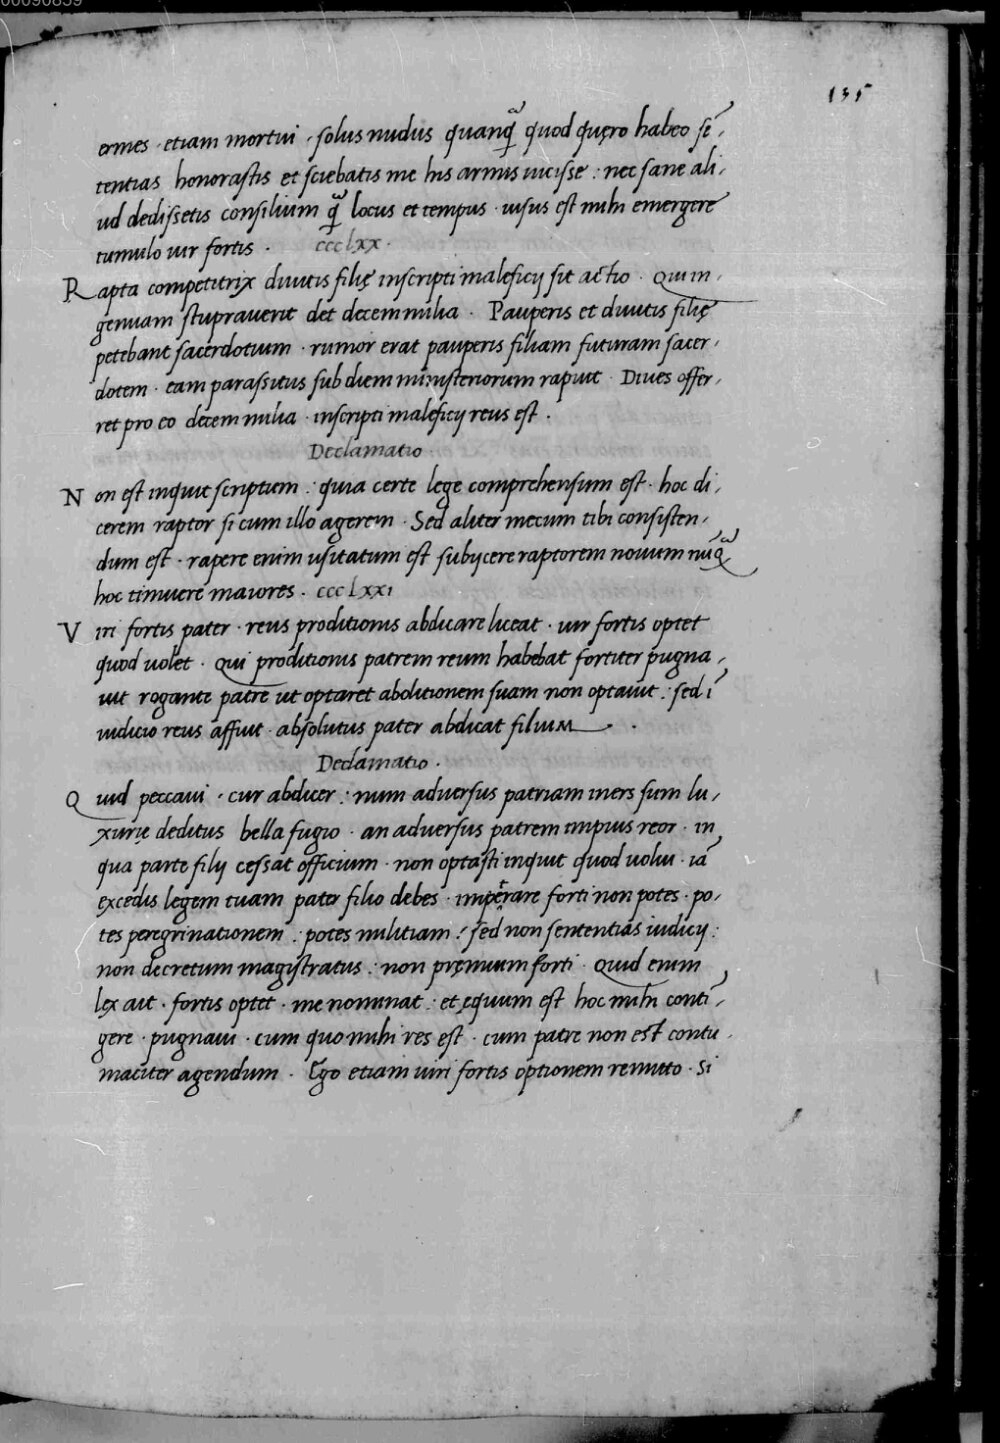 00090859
135
ermes · etiam mortui · solus nudus quanq̃ quod quęro habeo sẽ,
tentias honorastis et sciebatis me his armis uicisse : nec sane ali,
ud dedissetis consilium q̃ locus et tempus · uisus est mihi emergere
tumulo uir fortis · ccclxx ·
Rapta competitrix diuitis filię inscripti maleficij sit actio · Qui in,
genuam stuprauerit det decem milia · Pauperis et diuitis filię
petebant sacerdotium · rumor erat pauperis filiam futuram sacer,
dotem · eam parassitus sub diem ministeriorum rapuit · Diues offer,
ret pro eo decem milia · inscripti maleficij reus est ·
Declamatio
Non est inquit scriptum : quia certe lege comprehensum est · hoc di,
cerem raptor si cum illo agerem · Sed aliter mecum tibi consisten,
dum est · rapere enim usitatum est subijcere raptorem nouum nũq̃
hoc timuere maiores · ccclxxi
Viri fortis pater · reus proditionis abdicare liceat · uir fortis optet
quod uolet · Qui proditionis patrem reum habebat fortiter pugna,
uit rogante patre ut optaret abolitionem suam non optauit : sed ĩ
iudicio reus affuit · absolutus pater abdicat filium ·
Declamatio ·
Quid peccaui · cur abdicer : num adversus patriam iners sum lu,
xurię deditus bella fugio · an adversus patrem impius reor · in
qua parte filij cessat officium · non optasti inquit quod uolui · iã
excedis legem tuam pater filio debes · imperare forti non potes · po,
tes peregrinationem : potes militiam : sed non sententias iudicij :
non decretum magistratus : non pręmium forti · Quid enim
lex ait · fortis optet · me nominat : et ęquum est hoc mihi conti,
gere · pugnaui · cum quo mihi res est · cum patre non est contu,
maciter agendum · Ego etiam uiri fortis optionem remitto · si